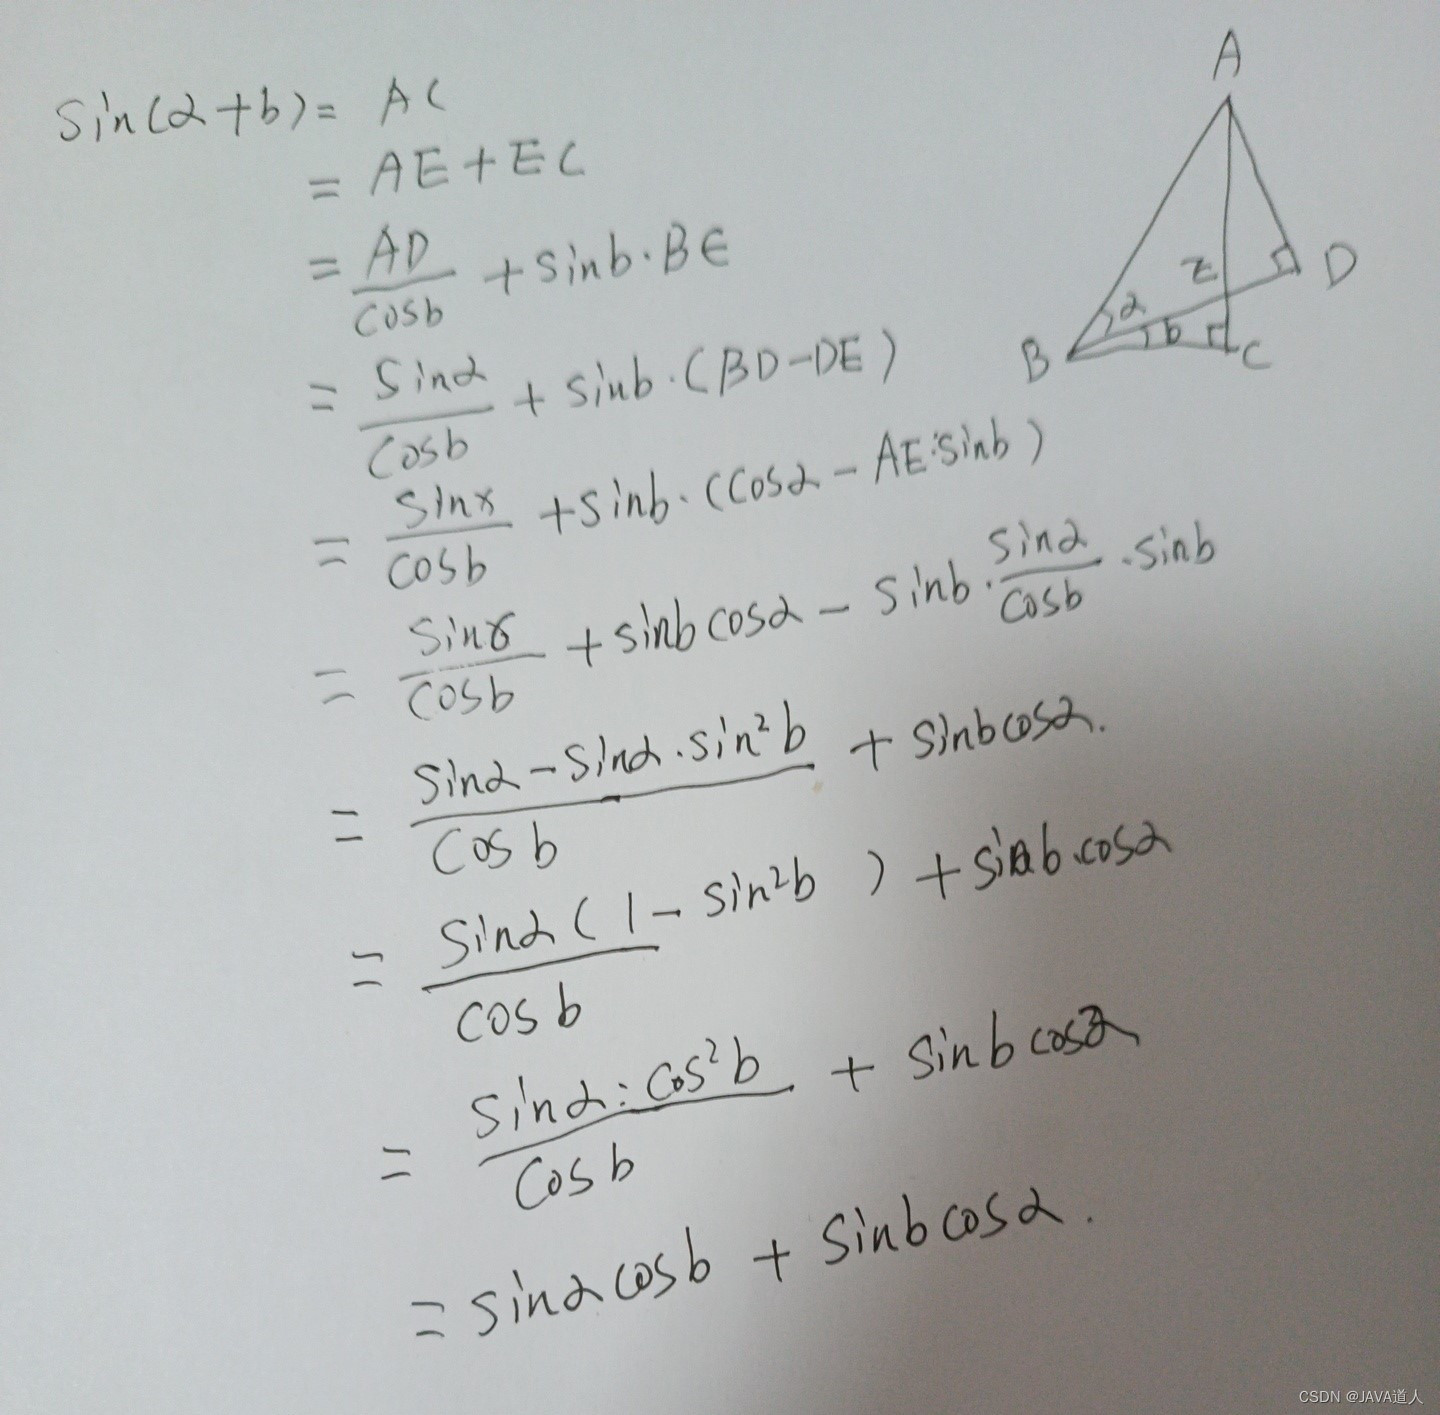 sin(α+b)= AC
= AE+EC
= AD/cosb + sinb·BE
= sinα/cosb + sinb·(BD-DE)
= sinα/cosb + sinb·(cosα - AE·sinb)
= sinα/cosb + sinb cosα - sinb·sinα/cosb·sinb
= sinα - sinα·sin²b/cosb + sinb cosα.
= sinα(1 - sin²b)/cosb + sinb·cosα
= sinα·cos²b/cosb + sinb cosα
= sinα cosb + sinb cosα.
A
E
D
α
b
B
C
CSDN @JAVA道人